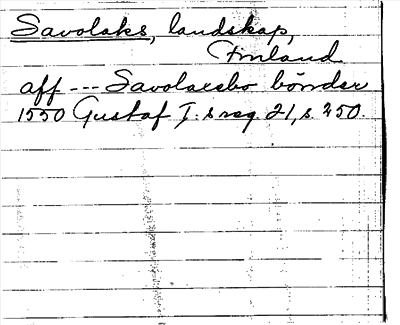 Savolaks, landskap,
Finland
aff --- Savolaxsbo bönder
1550 Gustaf I:s reg. 21, s. 250.